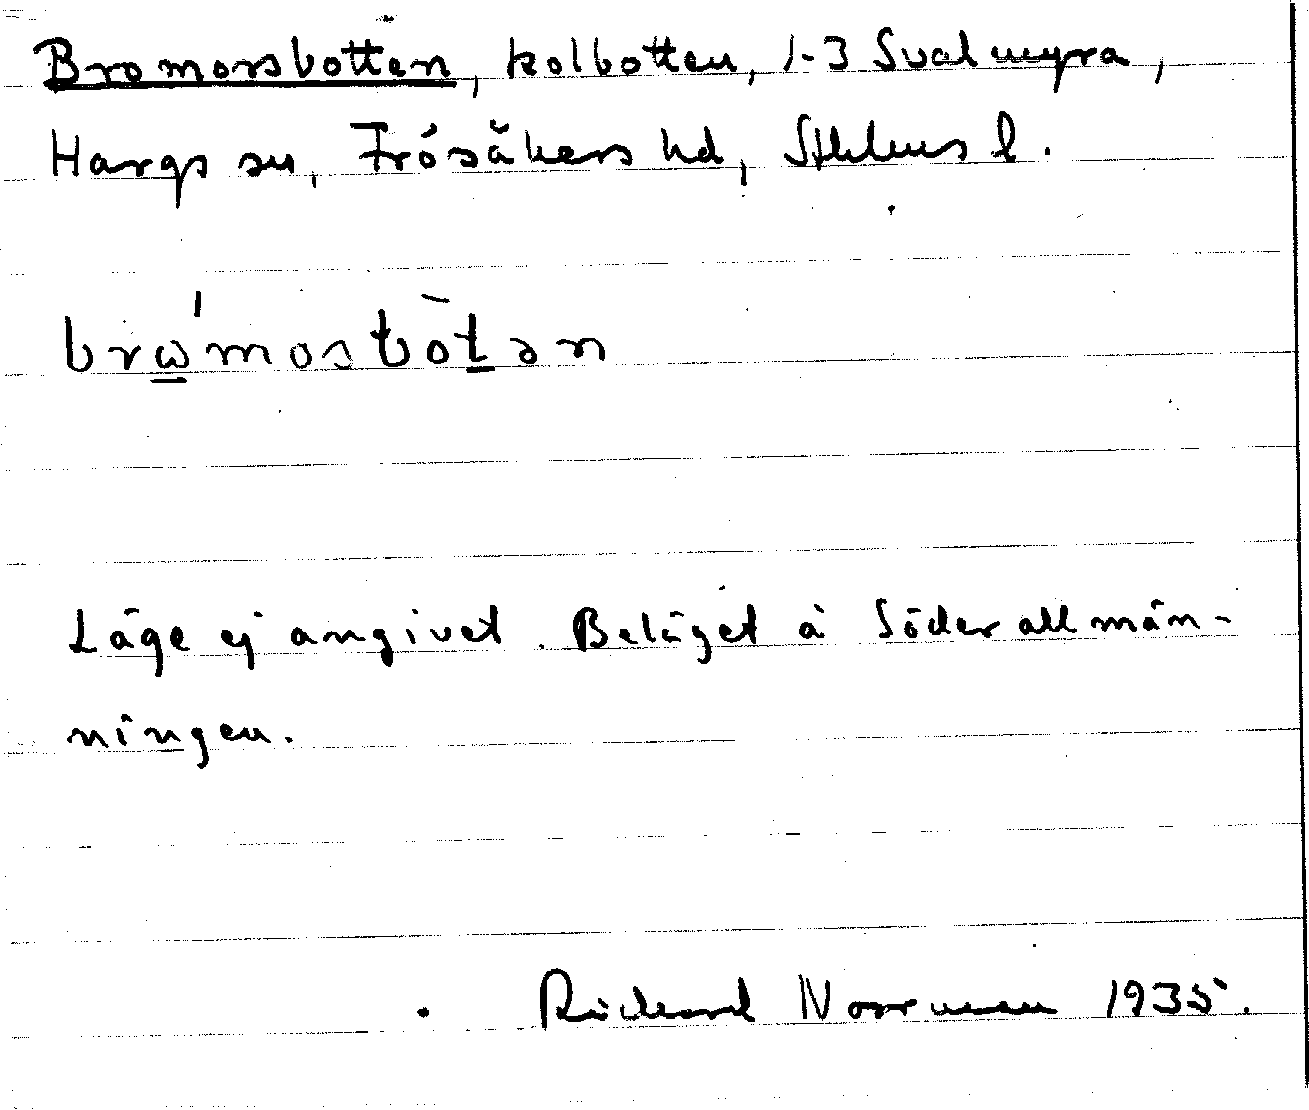 Bromorsbotten, kolbotten, 1-3 Svalmyra,
Hargs sn, Frösåkers hd, Sthlms l.
brώ̲mosbòt̲ən
Läge ej angivet. Beläget å Söderallmän-
ningen.
Richard Norrman 1935.